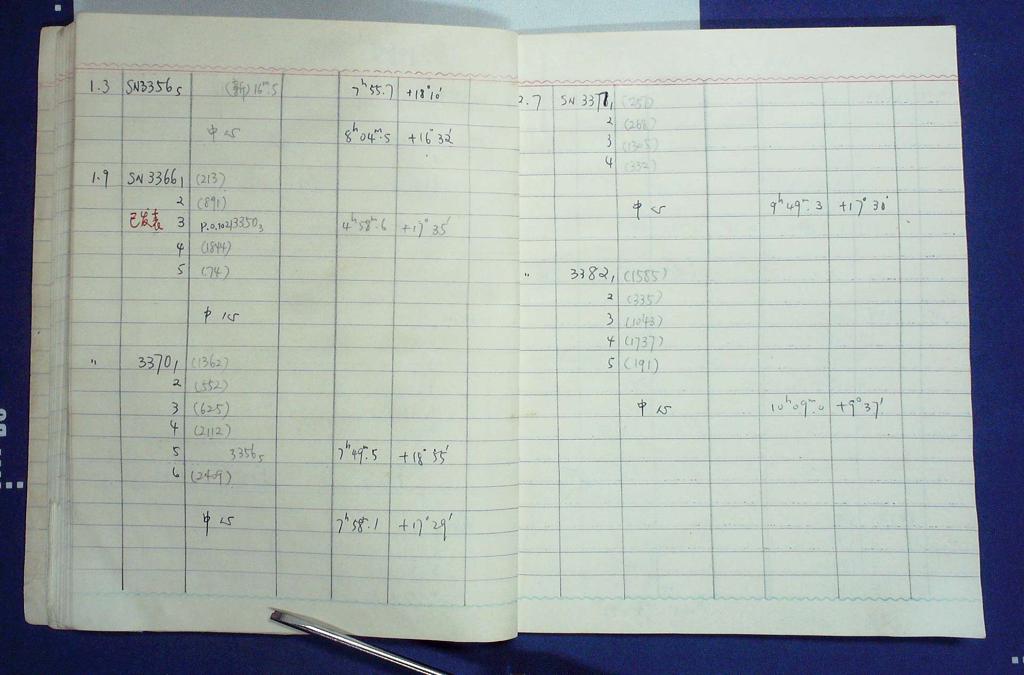 1.3 SN3356₅ (新) 16ᵐ.5 7ʰ 55.7 +18°10′
中心 8ʰ 04ᵐ.5 +16°32′
1.9 SN3366₁ (213)
2 (891)
已发表 3 P.O.1021 3350₃ 4ʰ 58ᵐ.6 +17°35′
4 (1844)
5 (74)
中心
" 3370₁ (1362)
2 (552)
3 (625)
4 (2112)
5 3356₅ 7ʰ 49ᵐ.5 +18°55′
6 (2409)
中心 7ʰ 58ᵐ.1 +17°29′
2.7 SN 3371₁ (251)
2 (268)
3 (1308)
4 (332)
中心 9ʰ 49ᵐ.3 +17°30′
" 3382₁ (1585)
2 (335)
3 (1043)
4 (1737)
5 (191)
中心 10ʰ 09ᵐ.0 +9°37′